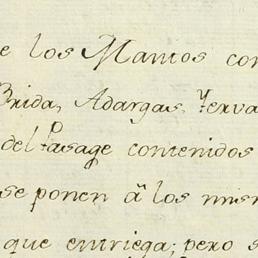 e los Mantos con
Brida, Adargas, Yerva
del Pasage contenidos
se ponen á los mism
que entriega; pero s